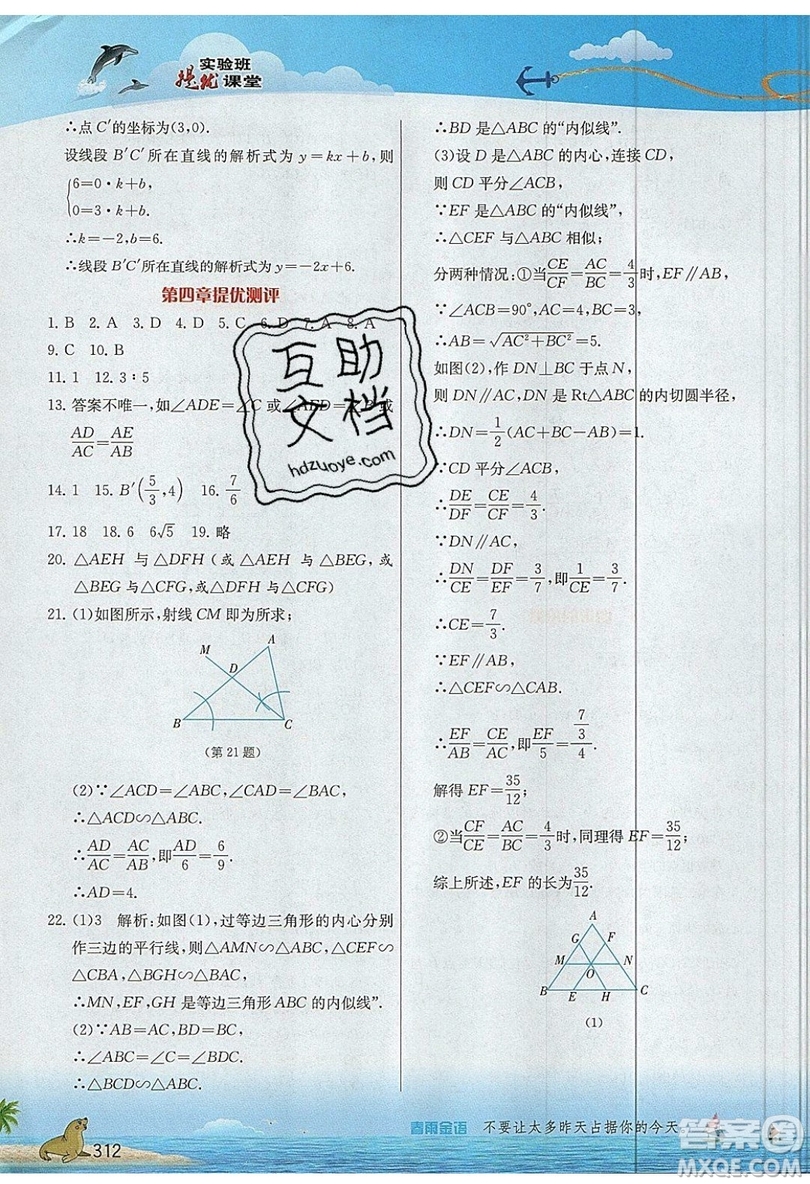 实验班
提优课堂
∴点 C′的坐标为(3,0).
设线段 B′C′所在直线的解析式为 y=kx+b,则
{6=0·k+b,
0=3·k+b.
∴k=-2,b=6.
∴线段 B′C′所在直线的解析式为 y=-2x+6.
第四章提优测评
1.B 2.A 3.D 4.D 5.C 6.D 7.A 8.A
9.C 10.B
11.1 12.3∶5
13.答案不唯一,如∠ADE=∠C 或∠AED=∠B 或
AD/AC=AE/AB
14.1 15.B′(5/3,4) 16.7/6
17.18 18.6 6√5 19.略
20.△AEH 与△DFH(或△AEH 与△BEG,或
△BEG 与△CFG,或△DFH 与△CFG)
21.(1)如图所示,射线 CM 即为所求;
A
M
D
B C
(第 21 题)
(2)∵∠ACD=∠ABC,∠CAD=∠BAC,
∴△ACD∽△ABC.
∴AD/AC=AC/AB,即AD/6=6/9.
∴AD=4.
22.(1)3 解析:如图(1),过等边三角形的内心分别
作三边的平行线,则△AMN∽△ABC,△CEF∽
△CBA,△BGH∽△BAC,
∴MN,EF,GH 是等边三角形 ABC 的内似线”.
(2)∵AB=AC,BD=BC,
∴∠ABC=∠C=∠BDC.
∴△BDC∽△ABC.
∴BD 是△ABC 的“内似线”.
(3)设 D 是△ABC 的内心,连接 CD,
则 CD 平分∠ACB,
∵EF 是△ABC 的“内似线”,
∴△CEF 与△ABC 相似;
分两种情况:①当CE/CF=AC/BC=4/3时,EF∥AB,
∵∠ACB=90°,AC=4,BC=3,
∴AB=√(AC²+BC²)=5.
如图(2),作 DN⊥BC 于点 N,
则 DN∥AC,DN 是 Rt△ABC 的内切圆半径,
∴DN=1/2(AC+BC-AB)=1.
∵CD 平分∠ACB,
∴DE/DF=CE/CF=4/3.
∵DN∥AC,
∴DN/CE=DF/EF=3/7,即1/CE=3/7.
∴CE=7/3.
∵EF∥AB,
∴△CEF∽△CAB.
∴EF/AB=CE/AC,即EF/5=(7/3)/4.
解得 EF=35/12;
②当CF/CE=AC/BC=4/3时,同理得 EF=35/12;
综上所述,EF 的长为35/12.
A
G F
M O N
B E H C
(1)
互助
文档
hdzuoye.com
312
春雨金语 不要让太多昨天占据你的今天
答案圈
MXQE.COM